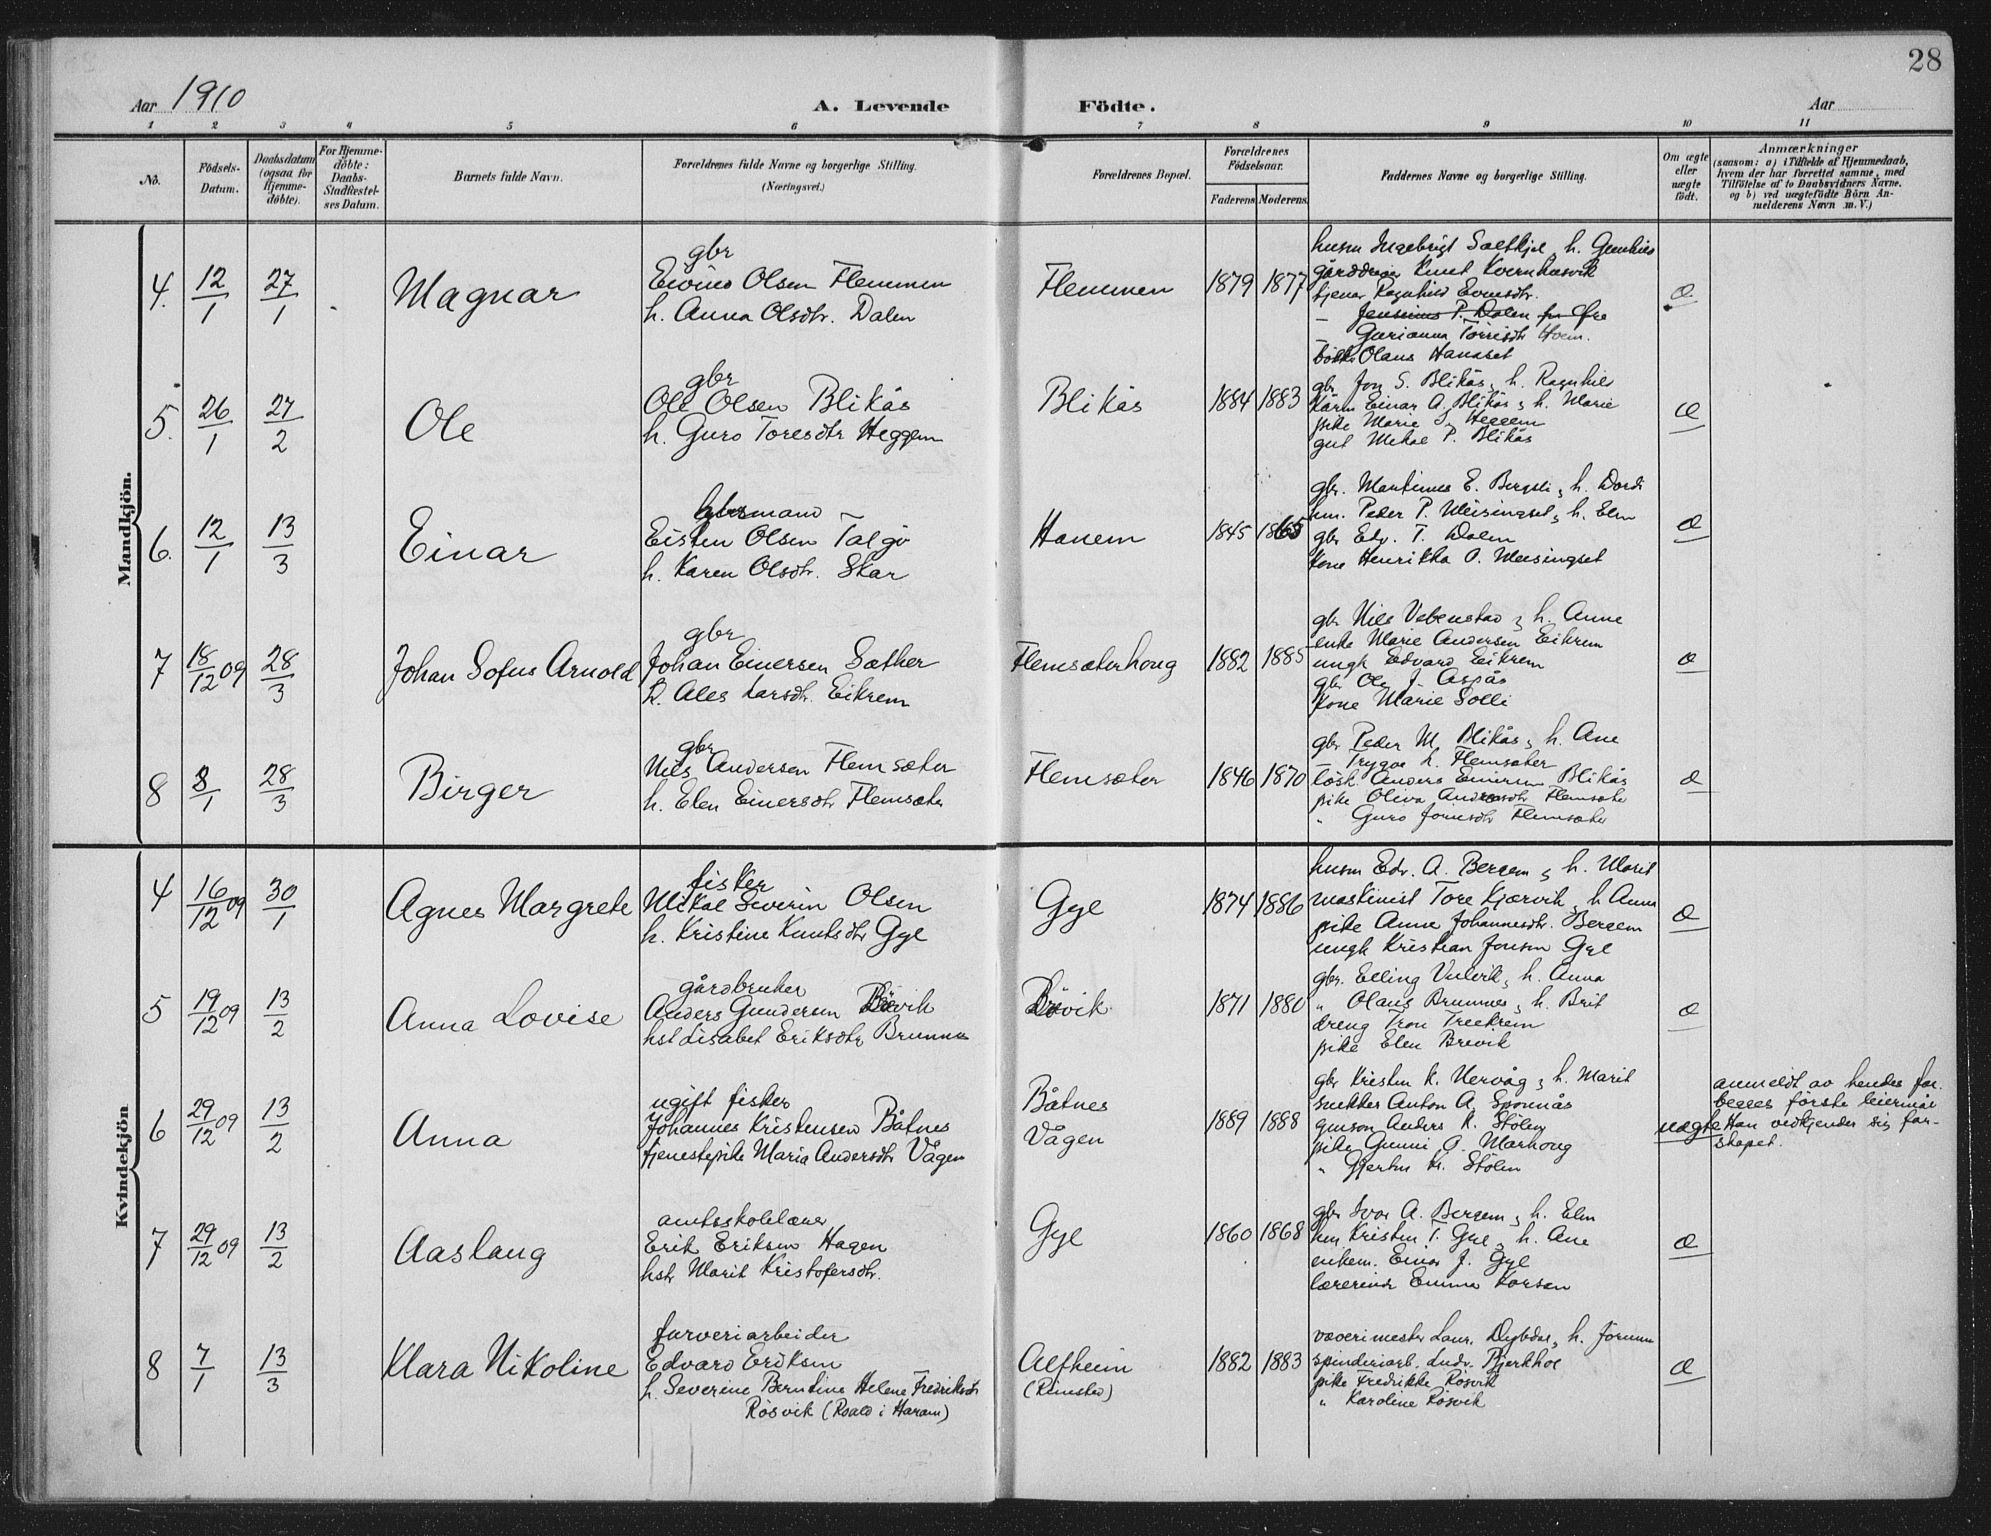 28
Aar 1910
A. Levende Födte.
Aar
1 2 3 4 5 6 7 8 9 10 11
No.
Födsels-Datum.
Daabsdatum (ogsaa for Hjemme-döbte).
For Hjemme-döbte: Daabs-Stadfæstel-ses Datum.
Barnets fulde Navn.
Forældrenes fulde Navne og borgerlige Stilling.
(Næringsvei.)
Forældrenes Bopæl.
Forældrenes Födselsaar.
Faderens Moderens
Faddernes Navne og borgerlige Stilling.
Om ægte eller uægte födt.
Anmærkninger
(saasom: a) i Tilfælde af Hjemmedaab,
hvem der har forrettet samme, med
Tilföielse af to Daabsvidners Navne,
og b) ved uægtefödte Börn An-
melderens Navn m. V.)
Mandkjön.
4. 12/1 27/1 Magnar
gbr
Eivind Olsen Flemmen
h. Anna Olsdtr. Dalen
Flemmen 1879 1877
husm Ingebrigt h. Gunhild
Knut Kvernhusvik
tjener Ragnhild
Jensinus P. Dalen
Gurianna Hoem.
Olaus Hanaset
æ
5. 26/1 27/2 Ole
gbr
Ole Olsen Blikås
h. Guro Toresdtr Heggem
Blikås 1884 1883
gbr Jon S. Blikås, h. Ragnhild
Einar A. Blikås, h. Marie
pike Marie S. Heggem
gut Mekal P. Blikås
æ
6. 12/1 13/3 Einar
husmand
Eisten Olsen Talgø
h. Karen Olsdtr. Skar
Hanem 1845 1865
gbr. Martinus E. Bergsli, h. Dordi
hm. Peder P. Meisingset, h. Elen
gbr Edv. T. Dalen
kone Henrikka O. Meisingset
æ
7 18/12 09 28/3 Johan Sofus Arnold
gbr
Johan Einersen Sæther
h. Ales Larsdtr. Eikrem
Flemsæterhoug 1882 1885
gbr Nils Vebenstad, h. Anne
enke Marie Andersen Eikrem
ungk Edvard Eikrem
gbr Ole J. Aspås
kone Marie Solli
æ
8 8/1 28/3 Birger
gbr
Nils Andersen Flemsæter
h. Elen Einersdtr Flemsæter
Flemsæter 1846 1870
gbr Peder M. Blikås, h. Ane
— Trygve L. Flemsæter
løsk. Anders Einersen Blikås
pike Oliva Andersdtr Flemsæter
" Guro Jonsdtr Flemsæter
æ
Kvindekjön
4 16/12 09 30/1 Agnes Margrete
fisker
Mikal Severin Olsen
h. Kristine Knutsdtr Gyl
Gyl 1874 1886
husm Edv. A. Bergem, h. Marit
maskinist Tore Kjørvik, h Anna
pike Anne Johannesdtr. Bergem
ungk Kristian Jonsen Gyl
æ
5 19/12 09 13/2 Anna Lovise
gårdbruker
Anders Gundersen Brevik
hst Lisabet Eriksdtr Brunnes
Brevik 1871 1880
gbr. Elling Vulvik, h. Anna
" Olaus Brunnes, h. Brit
dreng Tron Treekrem
pike Elen Brevik
æ
6 29/12 09 13/2 Anna
ugift fisker
Johannes Kristensen Båtnes
tjenestepike Maria Andersdtr Vågen
Båtnes
Vågen
1889 1888
gbr Kristen K. Nervåg, h. Marit
snekker Anton A. Sponnås
gmson Anders K. Stølen
pike Gunni A. Marhoug
" Gjertru Kr. Stølen
uægte
anmeldt av hendes far.
begges første leiermål
Han vedkjender sig far-
skapet.
7 29/12 09 13/2 Aaslaug
amtsskolelærer
Erik Eriksen Hagen
hstr Marit Kristofersdtr.
Gyl 1860 1868
gbr Ivar A. Bergem, h. Elen
hm Kristen T. Gyl, h. Ane
enkem. Einar J. Gyl
lærerinde Emma Korsan
æ
8 7/1 13/3 Klara Nikoline
farveriarbeider
Edvard Eriksen
h. Severine Berntine Helene Fredriksdtr
Røsvik (Roald i Haram)
Alfheim
(Rimstad)
1882 1883
væverimester Laur. Dybdal, h. Jørunn
spinderiarb. Ludv. Bjerkhol
pike Fredrikke Røsvik
" Karoline Røsvik
æ